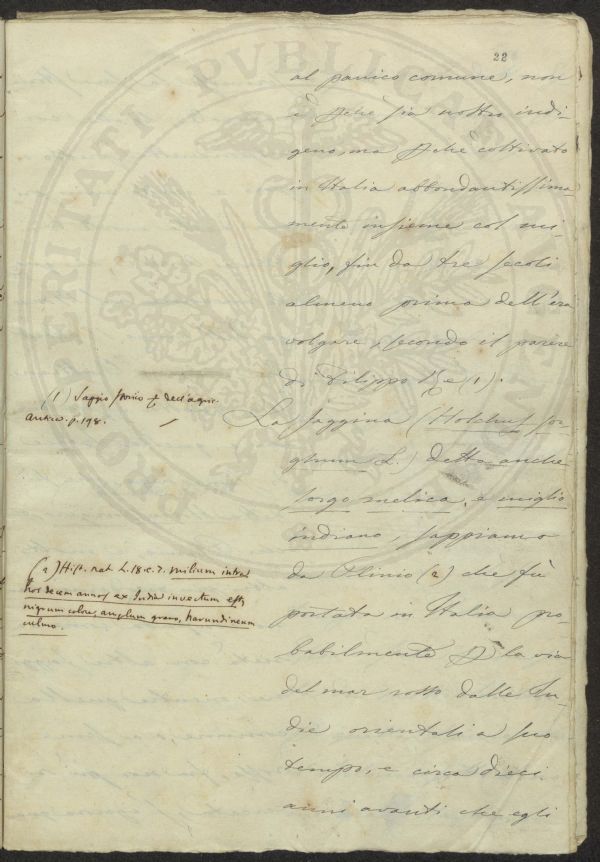 22
al panico comune, non
è pchè sia nostro indi-
geno, ma pchè coltivato
in Italia abbondantissima-
mente insieme col mi-
glio, fin da tre secoli
almeno prima dell'era
volgare, secondo il parere
di Filippo Re (1).
La Saggina (Holchus sor-
ghum L.) detta anche
sorgo melica, e miglio
indiano, sappiamo
da Plinio (2) che fù
portata in Italia pro-
babilmente p la via
del mar rosso dalle In-
die orientali a suo
tempo, e circa dieci
anni avanti che egli
(1) Saggio storico dell'agric.
antica. p. 198.
(2) Hist. nat. L. 18. c. 7. milium intra
hos decem annos ex India invectum est,
nigrum colore, amplum grano, harundineum
culmo.
PROSPERITATI PVBLICAE